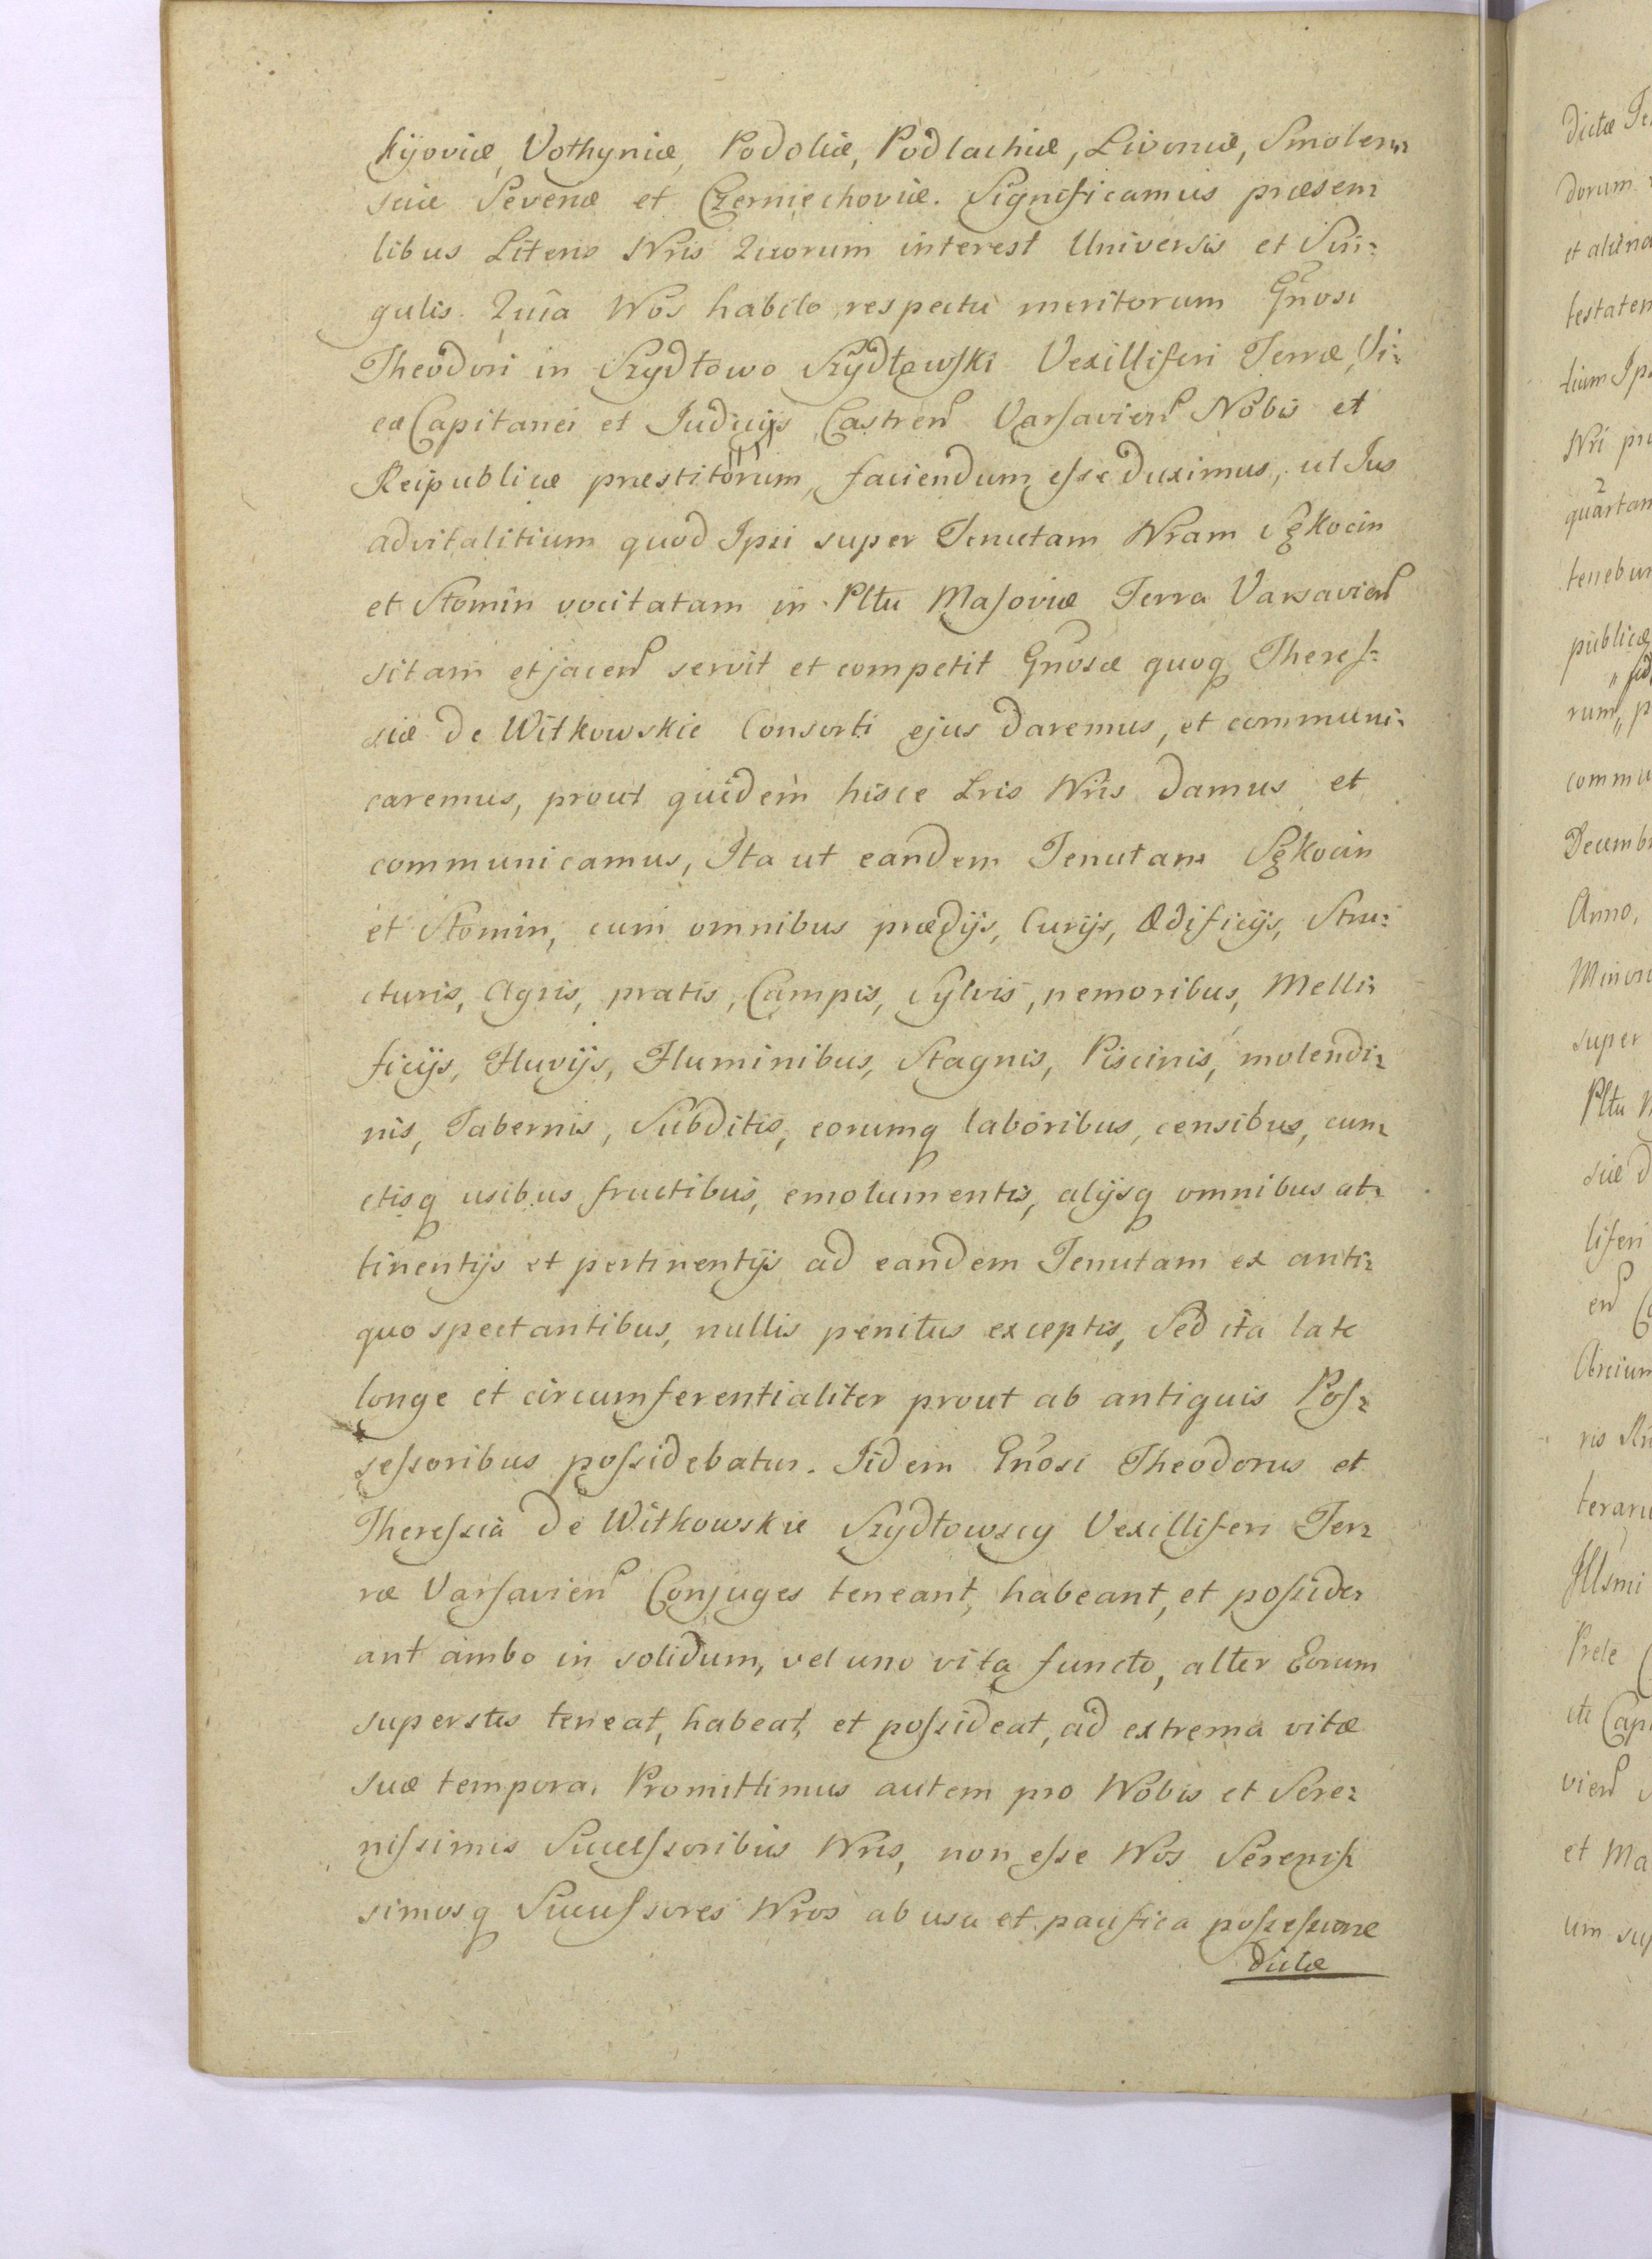 Kijoviæ, Vothyniæ, Podoliæ, Podlachiæ, Livoniæ, Smolen:
sciæ Severiæ et Czerniechoviæ. Significamus præsen:
tibus Literis Nris Quorum interest Universis et Sin:
gulis. Quia Nos habito respectu meritorum Gnosi
Theodori in Szydłowo Szydłowski Vexilliferi Terræ, Vi:
ce Capitanei et Judicijs Castren Varsavien Nobis et
Reipublicæ præstitorum, faciendum esse duximus, ut Jus
advitalitium quod Ipsi super Tenutam Nram Sękocin
et Słomin vocitatam in Pltu Masoviæ Terra Varsavien
sitam et jacen servit et competit Gnosæ quoq Theres:
siæ de Witkowskie Consorti ejus daremus, et communi:
caremus, prout quidem hisce Lris Nris damus et
communicamus, Ita ut eandem Tenutam Sękocin
et Słomin, cum omnibus prædijs, Curijs, Ædificijs, Stru:
cturis, Agris, pratis, Campis, Sylvis, nemoribus, Melli:
ficijs, Fluvijs, Fluminibus, Stagnis, Piscinis, molendi:
nis, Tabernis, Subditis, eorumq laboribus, censibus, cun:
ctisq usibus fructibus, emolumentis, alijsq omnibus at:
tinentijs et pertinentijs ad eandem Tenutam ex anti:
quo spectantibus, nullis penitus exceptis, Sed ita late
longe et circumferentialiter prout ab antiquis Pos:
sessoribus possidebatur. Iidem Gnosi Theodorus et
Theressia de Witkowskie Szydłowscy Vexilliferi Ter:
ræ Varsavien Conjuges teneant, habeant, et posside:
ant ambo in solidum, vel uno vita functo, alter Eorum
superstes teneat, habeat, et possideat, ad extrema vitæ
suæ tempora. Promittimus autem pro Nobis et Sere:
nissimis Successoribus Nris, non esse Nos Serenis:
simosq Successores Nros ab usu et pacifica possessione
dictæ